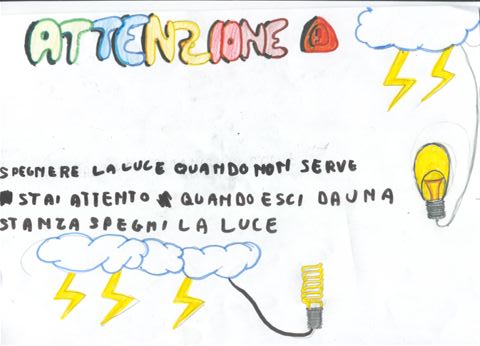 ATTENZIONE !
SPEGNERE LA LUCE QUANDO NON SERVE
STAI ATTENTO QUANDO ESCI DA UNA
STANZA SPEGNI LA LUCE